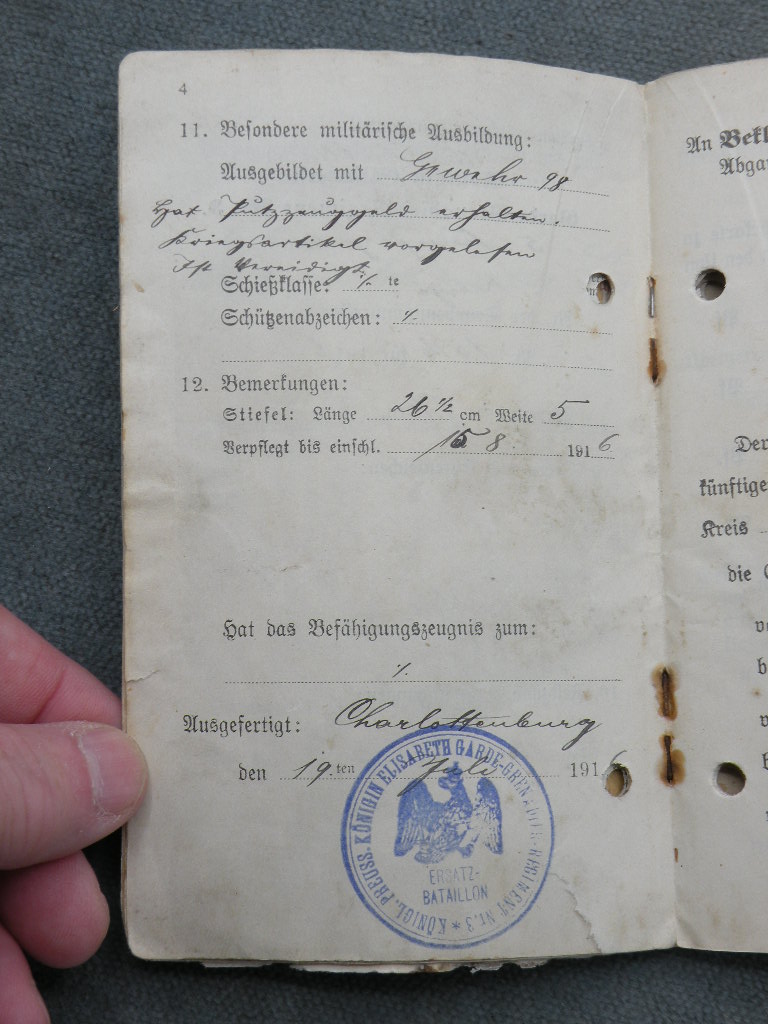 4
11. Besondere militärische Ausbildung:
Ausgebildet mit Gewehr 98
Hat Putzzeuggeld erhalten.
Kriegsartikel vorgelesen
Ist Vereidigt
Schießklasse: ·/. te
Schützenabzeichen: ·/.
12. Bemerkungen:
Stiefel: Länge 26 1/2 cm Weite 5
Verpflegt bis einschl. 15 8 1916
Hat das Befähigungszeugnis zum:
·/.
Ausgefertigt: Charlottenburg
den 19.ten Juli 1916
KÖNIGL. PREUSS. KÖNIGIN ELISABETH GARDE-GRENADIER-REGIMENT Nr. 3 *
ERSATZ-
BATAILLON
An Bekl
Abga
Der
künftige
Kreis
die
v
b
v
b